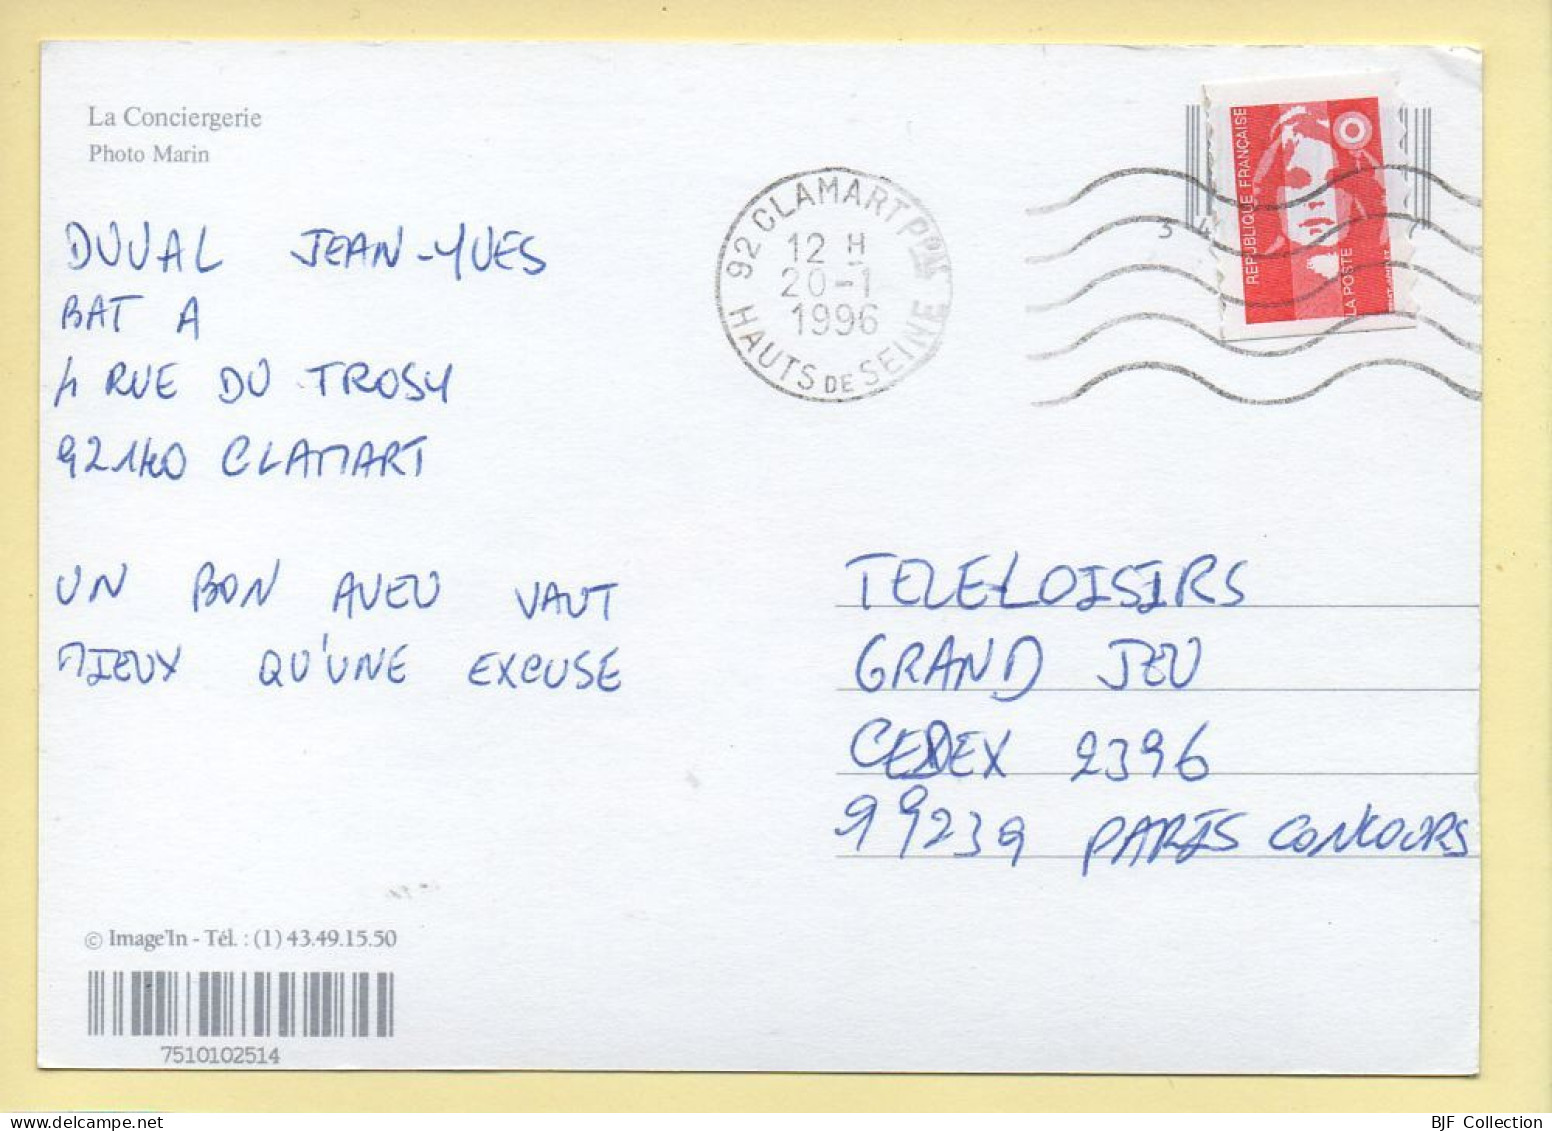 La Conciergerie
Photo Marin
DUVAL JEAN-YVES
BAT A
4 RUE DU TROSY
92140 CLAMART
UN BON AVEU VAUT
MIEUX QU'UNE EXCUSE
© Image'In - Tél. : (1) 43.49.15.50
7510102514
92 CLAMART PPAL
12 H
20-1
1996
HAUTS DE SEINE
REPUBLIQUE FRANÇAISE
LA POSTE
3 4 7
TELE-LOISIRS
GRAND JEU
CEDEX 2396
99239 PARIS CONCOURS
BJF Collection